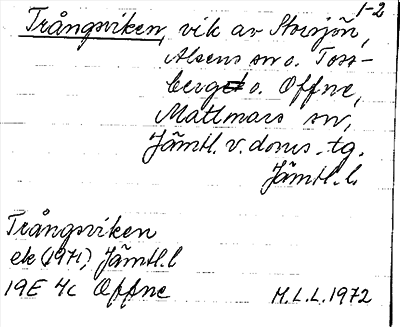 1-2
Trångsviken, vik av Storsjön,
Alsens sn o. Toss-
berget o. Offne,
Mattmars sn,
Jämtl. v. doms. tg.
Jämtl. l.
Trångsviken
ek (1971) Jämtl. l
19E 4c Offne
M.L.L. 1972